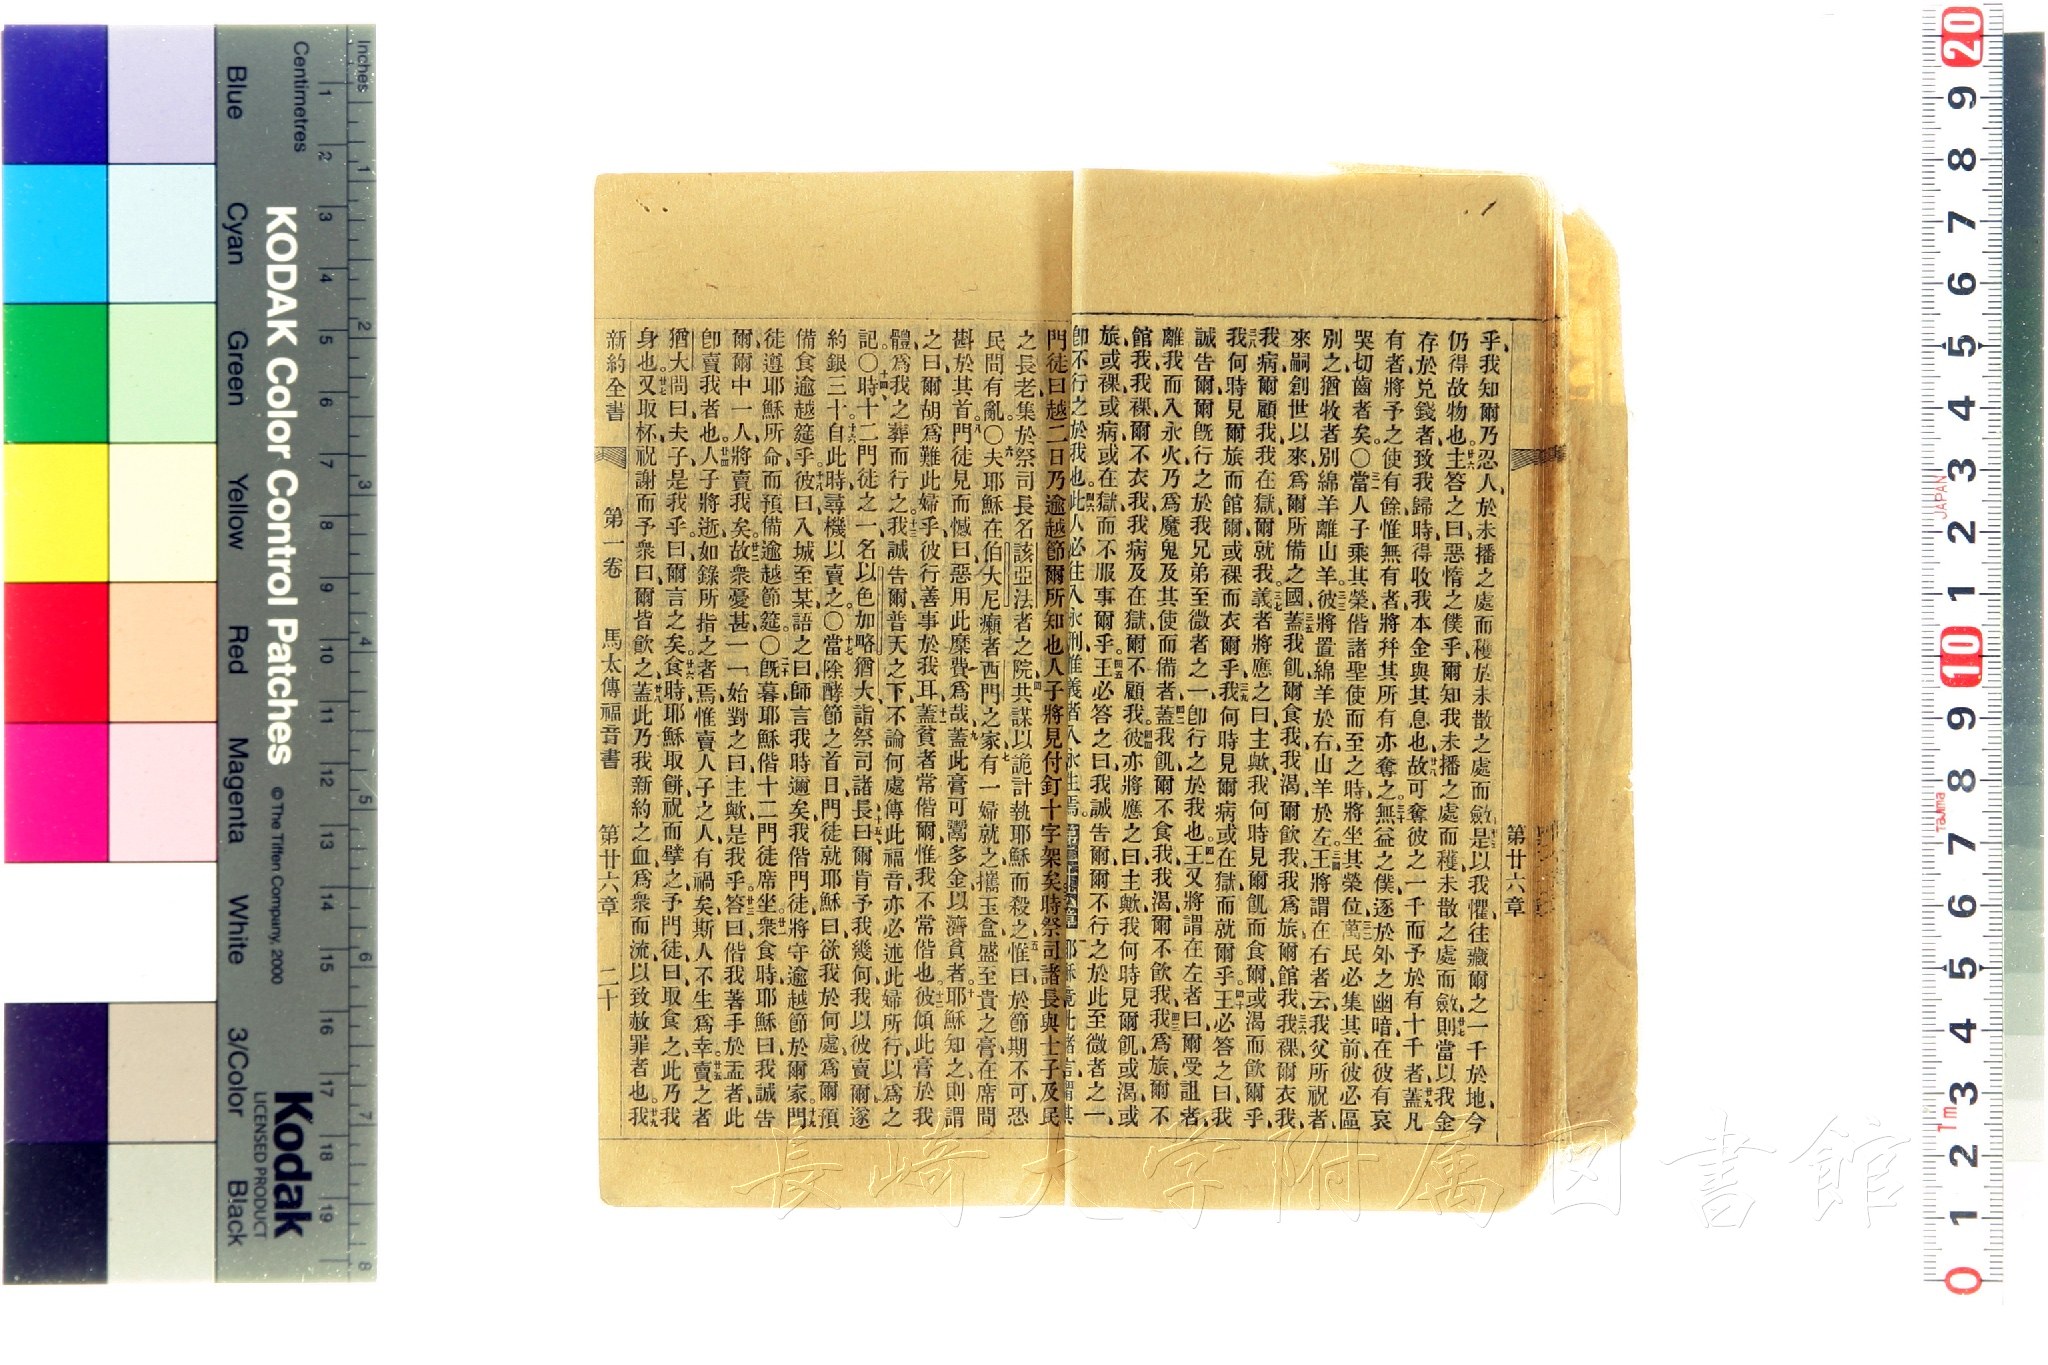 第廿六章
乎、我知爾乃忍人、於未播之處而穫、於未散之處而斂、是以我懼、往藏爾之一千於地、今
仍得故物也。廿六主答之曰、惡惰之僕乎、爾知我未播之處而穫、未散之處而斂、廿七則當以我金
存於兌錢者、致我歸時、得收我本金與其息也、廿八故可奪彼之一千而予於有十千者、廿九蓋凡
有者將予之、使有餘、惟無有者、將幷其所有亦奪之、三十無益之僕、逐於外之幽暗、在彼有哀
哭切齒者矣。〇三一當人子乘其榮、偕諸聖使而至之時、將坐其榮位、三二萬民必集其前、彼必區
別之、猶牧者別綿羊離山羊、三三彼將置綿羊於右、山羊於左、三四王將謂在右者云、我父所祝者、
來嗣創世以來爲爾所備之國、三五蓋我飢爾食我、我渴爾飮我、我爲旅爾館我、三六我裸爾衣我、
我病爾顧我、我在獄爾就我、三七義者將應之曰、主歟、我何時見爾飢而食爾、或渴而飮爾乎、
三八我何時見爾旅而館爾、或裸而衣爾乎、三九我何時見爾病或在獄而就爾乎、四十王必答之曰、我
誠告爾、爾旣行之於我兄弟至微者之一、卽行之於我也。四一王又將謂在左者曰、爾受詛者、
離我而入永火、乃爲魔鬼及其使而備者、四二蓋我飢爾不食我、我渴爾不飮我、四三我爲旅爾不
館我、我裸爾不衣我、我病及在獄爾不顧我。四四彼亦將應之曰、主歟、我何時見爾飢或渴或
旅或裸或病或在獄而不服事爾乎。四五王必答之曰、我誠告爾、爾不行之於此至微者之一、
卽不行之於我也。四六此人必往入永刑、惟義者入永生焉。第二十六章一耶穌竟此諸言、謂其
門徒曰、二越二日乃逾越節、爾所知也、人子將見付釘十字架矣、三時祭司諸長與士子及民
之長老、集於祭司長名該亞法者之院、四共謀以詭計執耶穌而殺之、五惟曰、於節期不可、恐
民間有亂。〇六夫耶穌在伯大尼癩者西門之家、七有一婦就之、攜玉盒盛至貴之膏、在席間
斟於其首、八門徒見而憾曰、惡用此糜費爲哉、九蓋此膏可鬻多金以濟貧者、十耶穌知之、則謂
之曰、爾胡爲難此婦乎、彼行善事於我耳、十一蓋貧者常偕爾、惟我不常偕也、十二彼傾此膏於我
體、爲我之葬而行之、十三我誠告爾、普天之下、不論何處傳此福音、亦必述此婦所行以爲之
記。〇十四時十二門徒之一、名以色加略猶大、詣祭司諸長曰、十五爾肯予我幾何、我以彼賣爾、遂
約銀三十。十六自此時尋機以賣之。〇十七當除酵節之首日、門徒就耶穌曰、欲我於何處爲爾預
備食逾越筵乎、十八彼曰、入城至某、語之曰、師言我時邇矣、我偕門徒將守逾越節於爾家、十九門
徒遵耶穌所命而預備逾越節筵。〇二十旣暮、耶穌偕十二門徒席坐、廿一衆食時、耶穌曰、我誠告
爾、爾中一人將賣我矣、廿二故衆憂甚、一一始對之曰、主歟、是我乎、廿三答曰、偕我著手於盂者、此
卽賣我者也、廿四人子將逝、如錄所指之者焉、惟賣人子之人有禍矣、斯人不生爲幸、廿五賣之者
猶大問曰、夫子、是我乎、曰、爾言之矣、廿六食時、耶穌取餅祝而擘之、予門徒曰、取食之、此乃我
身也。廿七又取杯祝謝而予衆曰、爾皆飮之、廿八蓋此乃我新約之血、爲衆而流、以致赦罪者也、廿九我
新約全書 第一卷 馬太傳福音書 第廿六章 二十
Inches
Centimetres
Blue Cyan Green Yellow Red Magenta White 3/Color Black
KODAK Color Control Patches
© The Tiffen Company, 2000
Kodak
LICENSED PRODUCT
1 2 3 4 5 6 7 8 9 10 11 12 13 14 15 16 17 18 19
1 2 3 4 5 6 7 8
20 9 8 7 6 5 4 3 2 1 10 9 8 7 6 5 4 3 2 1 0
JAPAN
Tajima
Tm
長崎大学附属図書館